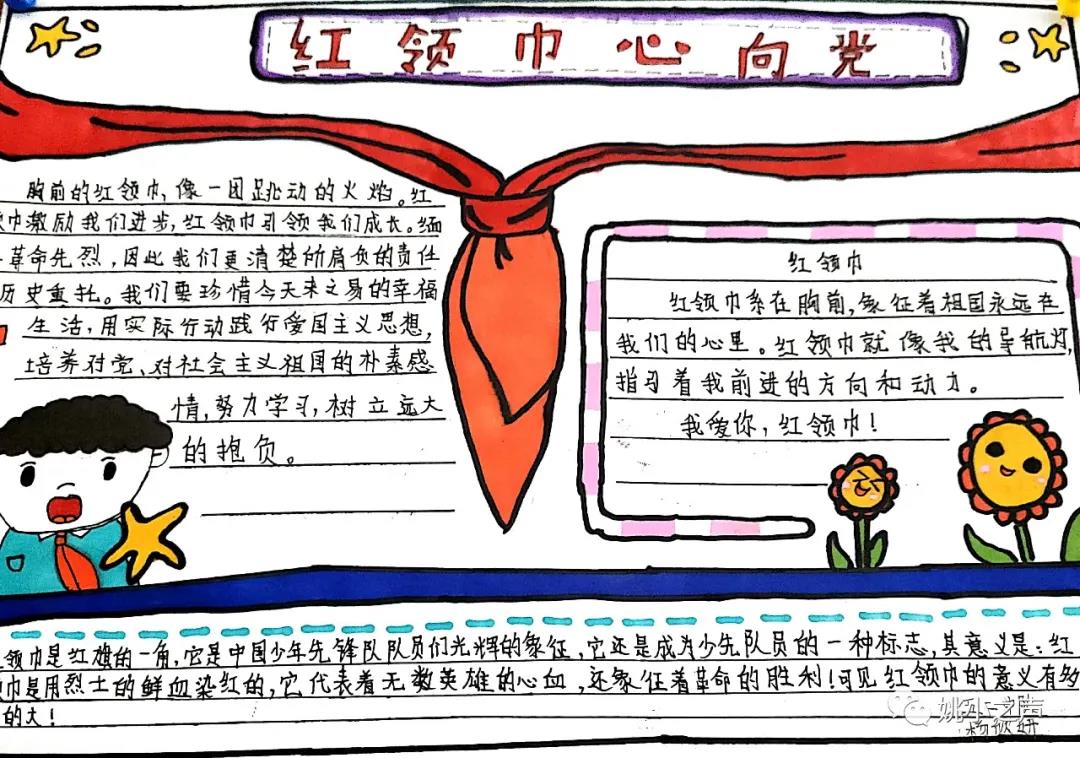 红领巾心向党
胸前的红领巾,像一团跳动的火焰。红
巾激励我们进步,红领巾引领我们成长。缅
革命先烈,因此我们更清楚的肩负的责任
历史重托。我们要珍惜今天来之易的幸福
生活,用实际行动践行爱国主义思想,
培养对党、对社会主义祖国的朴素感
情,努力学习,树立远大
的抱负。
红领巾
红领巾系在胸前,象征着祖国永远在
我们的心里。红领巾就像我的导航灯,
指引着我前进的方向和动力。
我爱你,红领巾!
领巾是红旗的一角,它是中国少年先锋队队员们光辉的象征,它还是成为少先队员的一种标志,其意义是:红
巾是用烈士的鲜血染红的,它代表着无数英雄的心血,还象征着革命的胜利!可见红领巾的意义有多
的大!